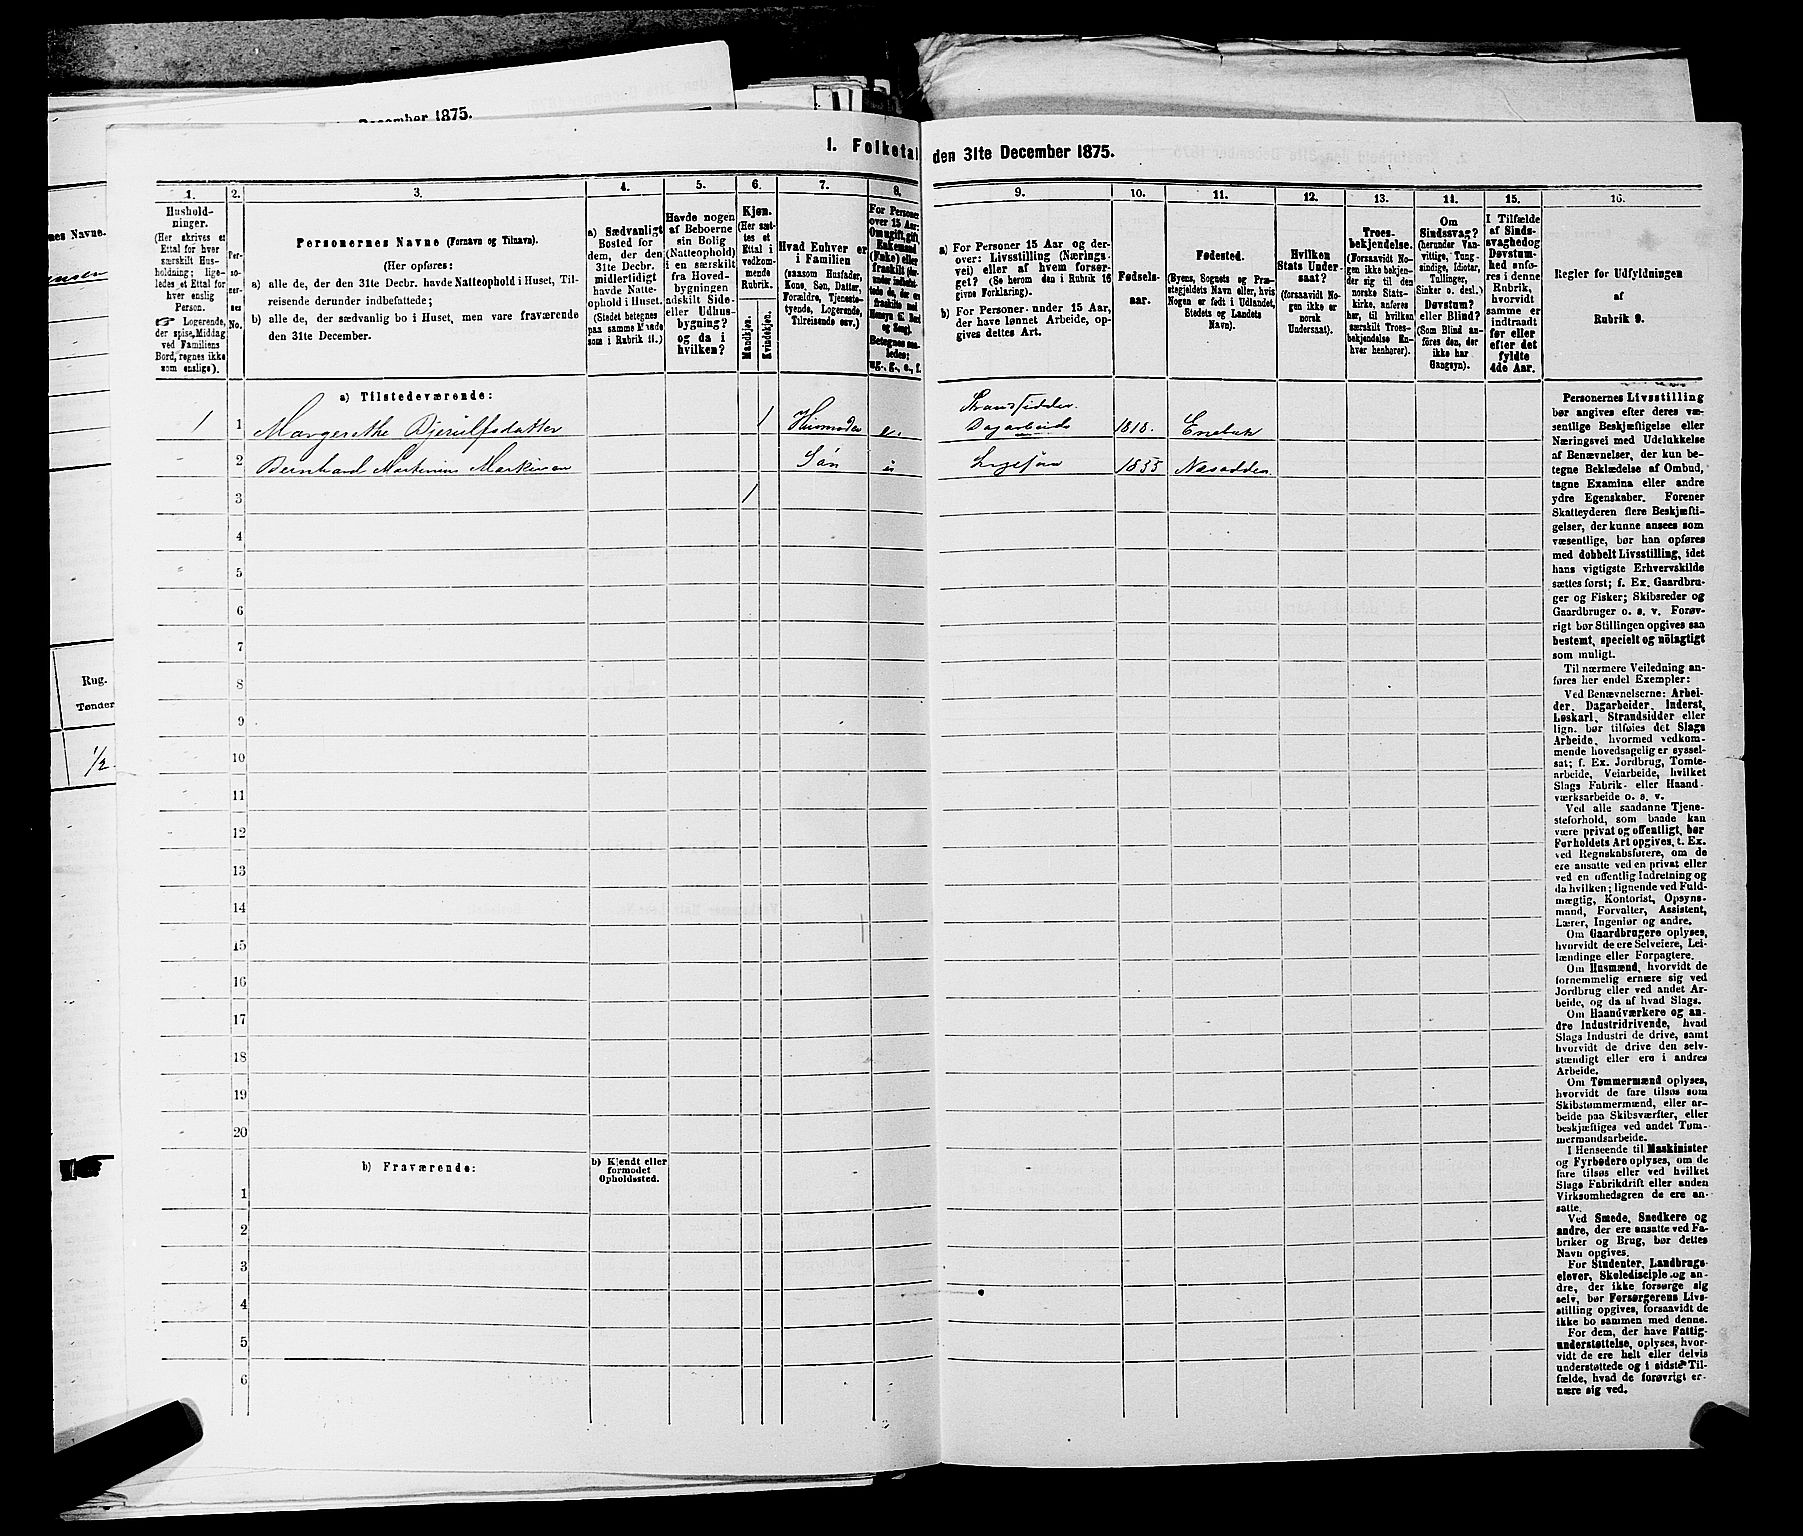 December 1875.
nes Navne.
Rug.
Tønder
1/2
1. Folketal
den 31te December 1875.
1.
Hushold-
ninger.
(Her skrives et
Ettal for hver
særskilt Hus-
holdning; lige-
ledes et Ettal for
hver enslig
Person.
☞ Logerende,
der spise Middag
ved Familiens
Bord, regnes ikke
som enslige).
2.
Per-
so-
ner-
nes
No.
3.
Personernes Navne (Fornavn og Tilnavn).
(Her opføres:
a) alle de, der den 31te Decbr. havde Natteophold i Huset, Til-
reisende derunder indbefattede;
b) alle de, der sædvanlig bo i Huset, men vare fraværende
den 31te December.
4.
a) Sædvanligt
Bosted for
dem, der den
31te Decbr.
midlertidigt
havde Natte-
ophold i Huset.
(Stedet betegnes
paa samme Maade
som i Rubrik 11.)
5.
Havde nogen
af Beboerne
sin Bolig
(Natteophold)
i en særskilt
fra Hoved-
bygningen
adskilt Side-
eller Udhus-
bygning?
og da i
hvilken?
6.
Kjøn.
(Her sæt-
tes et
Ettal i
vedkom-
mende
Rubrik.
Mandkjøn.
Kvindekjøn.
7.
Hvad Enhver er
i Familien
(saasom Husfader,
Kone, Søn, Datter,
Forældre, Tjeneste-
tyende, Logerende,
Tilreisende osv.)
8.
For Personer
over 15 Aar:
Om ugift, gift,
Enkemand
(Enke) eller
fraskilt
Betegnes saa-
ledes:
ug., g., e., f.
9.
a) For Personer 15 Aar og der-
over: Livsstilling (Nærings-
vei) eller af hvem forsør-
get? (Se herom den i Rubrik 16
givne Forklaring).
b) For Personer under 15 Aar,
der have lønnet Arbeide, op-
gives dettes Art.
10.
Fødsels-
aar.
11.
Fødested.
(Byens, Sognets og Præ-
stegjeldets Navn eller, hvis
Nogen er født i Udlandet,
Stedets og Landets
Navn).
12.
Hvilken
Stats Under-
saat?
(forsaavidt No-
gen ikke er
norsk
Undersaat).
13.
Troes-
bekjendelse.
(Forsaavidt No-
gen ikke bekjen-
der sig til den
norske Stats-
kirke, anføres
her, til hvilken
særskilt Troes-
bekjendelse En-
hver henhører).
14.
Om
Sindssvag?
(herunder Van-
vittige, Tung-
sindige, Idioter,
Tullinger,
Sinker o. desl.)
Døvstum?
eller Blind?
(Som Blind an-
føres den, der
ikke har
Gangsyn).
15.
I Tilfælde
af Sinds-
svaghed og
Døvstum-
hed anfø-
res i denne
Rubrik,
hvorvidt
samme er
indtraadt
før eller
efter det
fyldte
4de Aar.
16.
Regler for Udfyldningen
af
Rubrik 9.
a) Tilstedeværende:
1 1 Margrethe Bjerulfsdatter 1 Husmoder e. Strandsidder. Dagarbeide 1818. Enebak
2 Bernhard Martinius Søn Nesodden
3 1
4
5
6
7
8
9
10
11
12
13
14
15
16
17
18
19
20
b) Fraværende:
b) Kjendt eller
formodet
Opholdssted.
1
2
3
4
5
6
Personernes Livsstilling
bør angives efter deres væ-
sentlige Beskjæftigelse eller
Næringsvei med Udelukkelse
af Benævnelser, der kun be-
tegne Beklædelse af Ombud,
tagne Examina eller andre
ydre Egenskaber. Forener
Skatteyderen flere Beskjæfti-
gelser, der kunne ansees som
væsentlige, bør han opføres
med dobbelt Livsstilling, idet
hans vigtigste Erhvervskilde
sættes først; f. Ex. Gaardbru-
ger og Fisker; Skibsreder og
Gaardbruger o. s. v. Forøv-
rigt bør Stillingen opgives saa
bestemt, specielt og nöiagtigt
som muligt.
Til nærmere Veiledning an-
føres her endel Exempler:
Ved Benævnelserne: Arbei-
der, Dagarbeider, Inderst,
Løskarl, Strandsidder eller
lign. bør tilføies det Slags
Arbeide, hvormed vedkom-
mende hovedsagelig er syssel-
sat; f. Ex. Jordbrug, Tomte-
arbeide, Veiarbeide, hvilket
Slags Fabrik- eller Haand-
værksarbeide o. s. v.
Ved alle saadanne Tjene-
steforhold, som baade kan
være privat og offentligt, bør
Forholdets Art opgives, t. Ex.
ved Regnskabsførere, om de
ere ansatte ved en privat eller
ved en offentlig Indretning og
da hvilken; lignende ved Fuld-
mægtig, Kontorist, Opsyns-
mand, Forvalter, Assistent,
Lærer, Ingeniør og andre.
Om Gaardbrugere oplyses,
hvorvidt de ere Selveiere, Lei-
lændinge eller Forpagtere.
Om Husmænd, hvorvidt de
fornemmelig ernære sig ved
Jordbrug eller ved andet Ar-
beide, og da af hvad Slags.
Om Haandværkere og an-
dre Industridrivende, hvad
Slags Industri de drive, samt
hvorvidt de drive den selv-
stændigt eller ere i andres
Arbeide.
Om Tømmermænd oplyses,
hvorvidt de fare tilsøs som
Skibstømmermænd, eller ar-
beide paa Skibsværfter, eller
beskjæftiges ved andet Tøm-
mermandsarbeide.
I Henseende til Maskinister
og Fyrbødere oplyses, om de
fare tilsøs eller ved hvilket
Slags Fabrikdrift eller anden
Virksomhedsgren de ere an-
satte.
Ved Smede, Snedkere og
andre, der ere ansatte ved Fa-
briker og Brug, bør dettes
Navn opgives.
For Studenter, Landbrugs-
elever, Skoledisciple og an-
dre, der ikke forsørge sig
selv, bør Forsørgerens Livs-
stilling opgives, forsaavidt de
ikke bo sammen med denne.
For dem, der have Fattig-
understøttelse, oplyses, hvor-
vidt de ere helt eller delvis
understøttede og i sidste Til-
fælde, hvad de forøvrigt er-
nære sig ved.